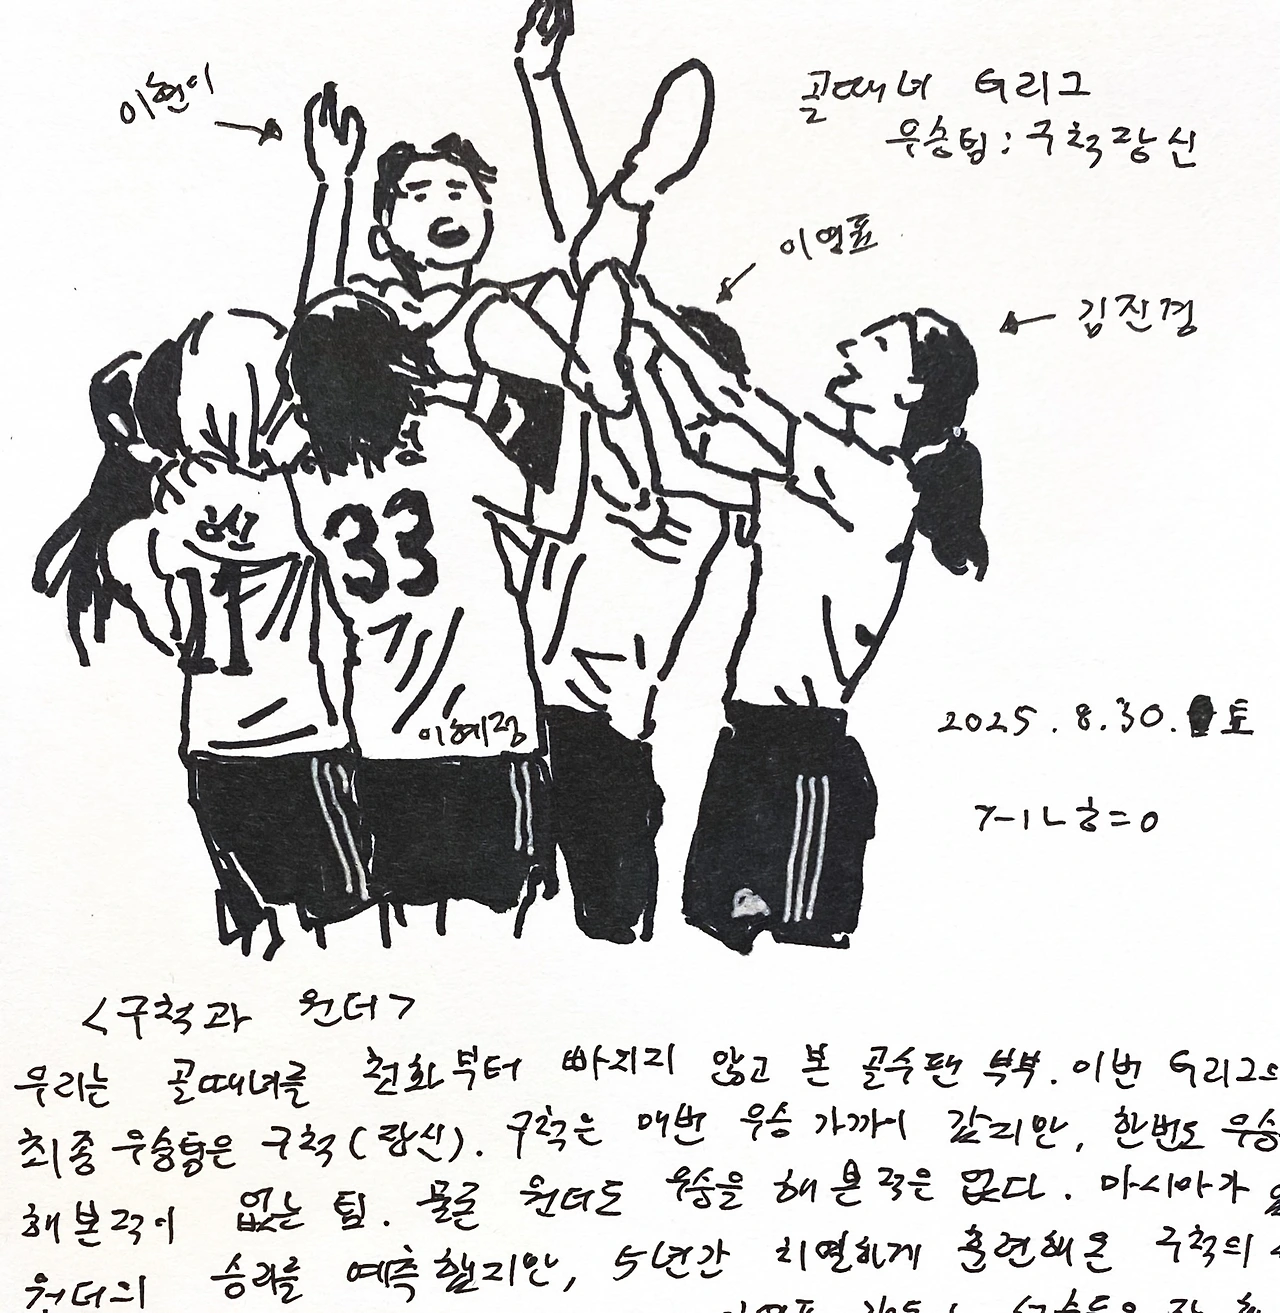 이현이
골때녀 G리그
우승팀: 구척장신
이영표
김진경
33
11
이혜정
2025.8.30.토
가나홍=0
<구척과 원더>
우리는 골때녀를 첫화부터 빠지지 않고 본 골수팬 부부. 이번 G리그의
최종 우승팀은 구척(장신). 구척은 매번 우승 가까이 갔지만, 한번도 우승
해본적이 없는 팀. 물론 원더도 우승을 해 본 적은 없다. 마시아가
원더의 승리를 예측했지만, 5년간 치열하게 훈련해온 구척의